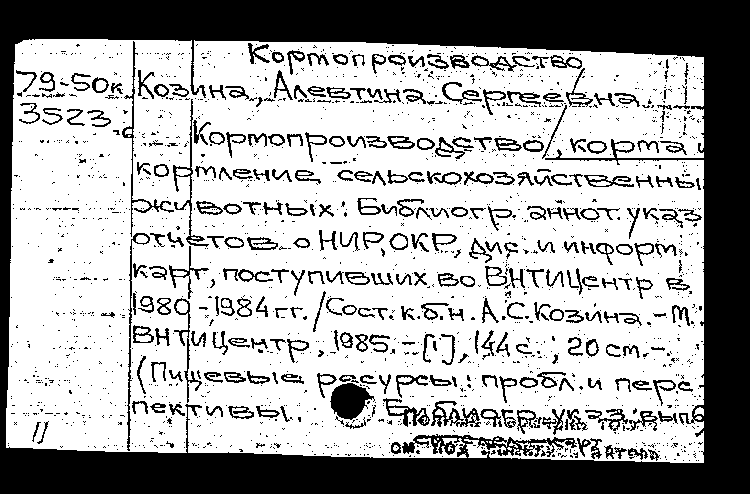 Кормопроизводство
79-50к Козина, Алевтина Сергеевна.
3523
Кормопроизводство, корма и
кормление сельскохозяйственны
животных: Библиогр. аннот. указ
отчетов о НИР, ОКР, дис. и информ.
карт, поступивших во ВНТИЦентр в
1980-1984 гг. / Сост. к.б.н. А.С. Козина. - М.:
ВНТИЦентр, 1985. - [1], 144 с.; 20 см. -
(Пищевые ресурсы: пробл. и перс-
пективы. Библиогр. указ.; вып6
см. под
11